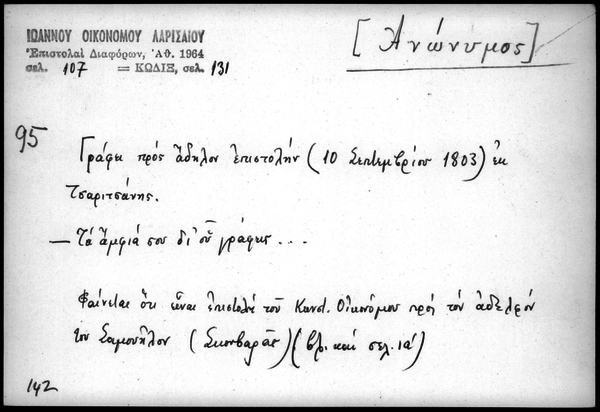 ΙΩΑΝΝΟΥ ΟΙΚΟΝΟΜΟΥ ΛΑΡΙΣΑΙΟΥ
Ἐπιστολαὶ Διαφόρων, Ἀθ. 1964
σελ. 107 = ΚΩΔΙΞ, σελ. 131
[Ἀνώνυμος]
95
Γράφει πρὸς ἄδηλον ἐπιστολήν (10 Σεπτεμβρίου 1803) ἐκ
Τσαριτσάνης.
— Τὰ ἄμφιά σου δι' οὗ γράφεις ...
Φαίνεται ὅτι εἶναι ἐπιστολὴ τοῦ Κωνστ. Οἰκονόμου πρὸς τὸν ἀδελφόν
του Σαμουῆλον (Σκουβαρᾶς) (βλ. καὶ σελ. ια')
142